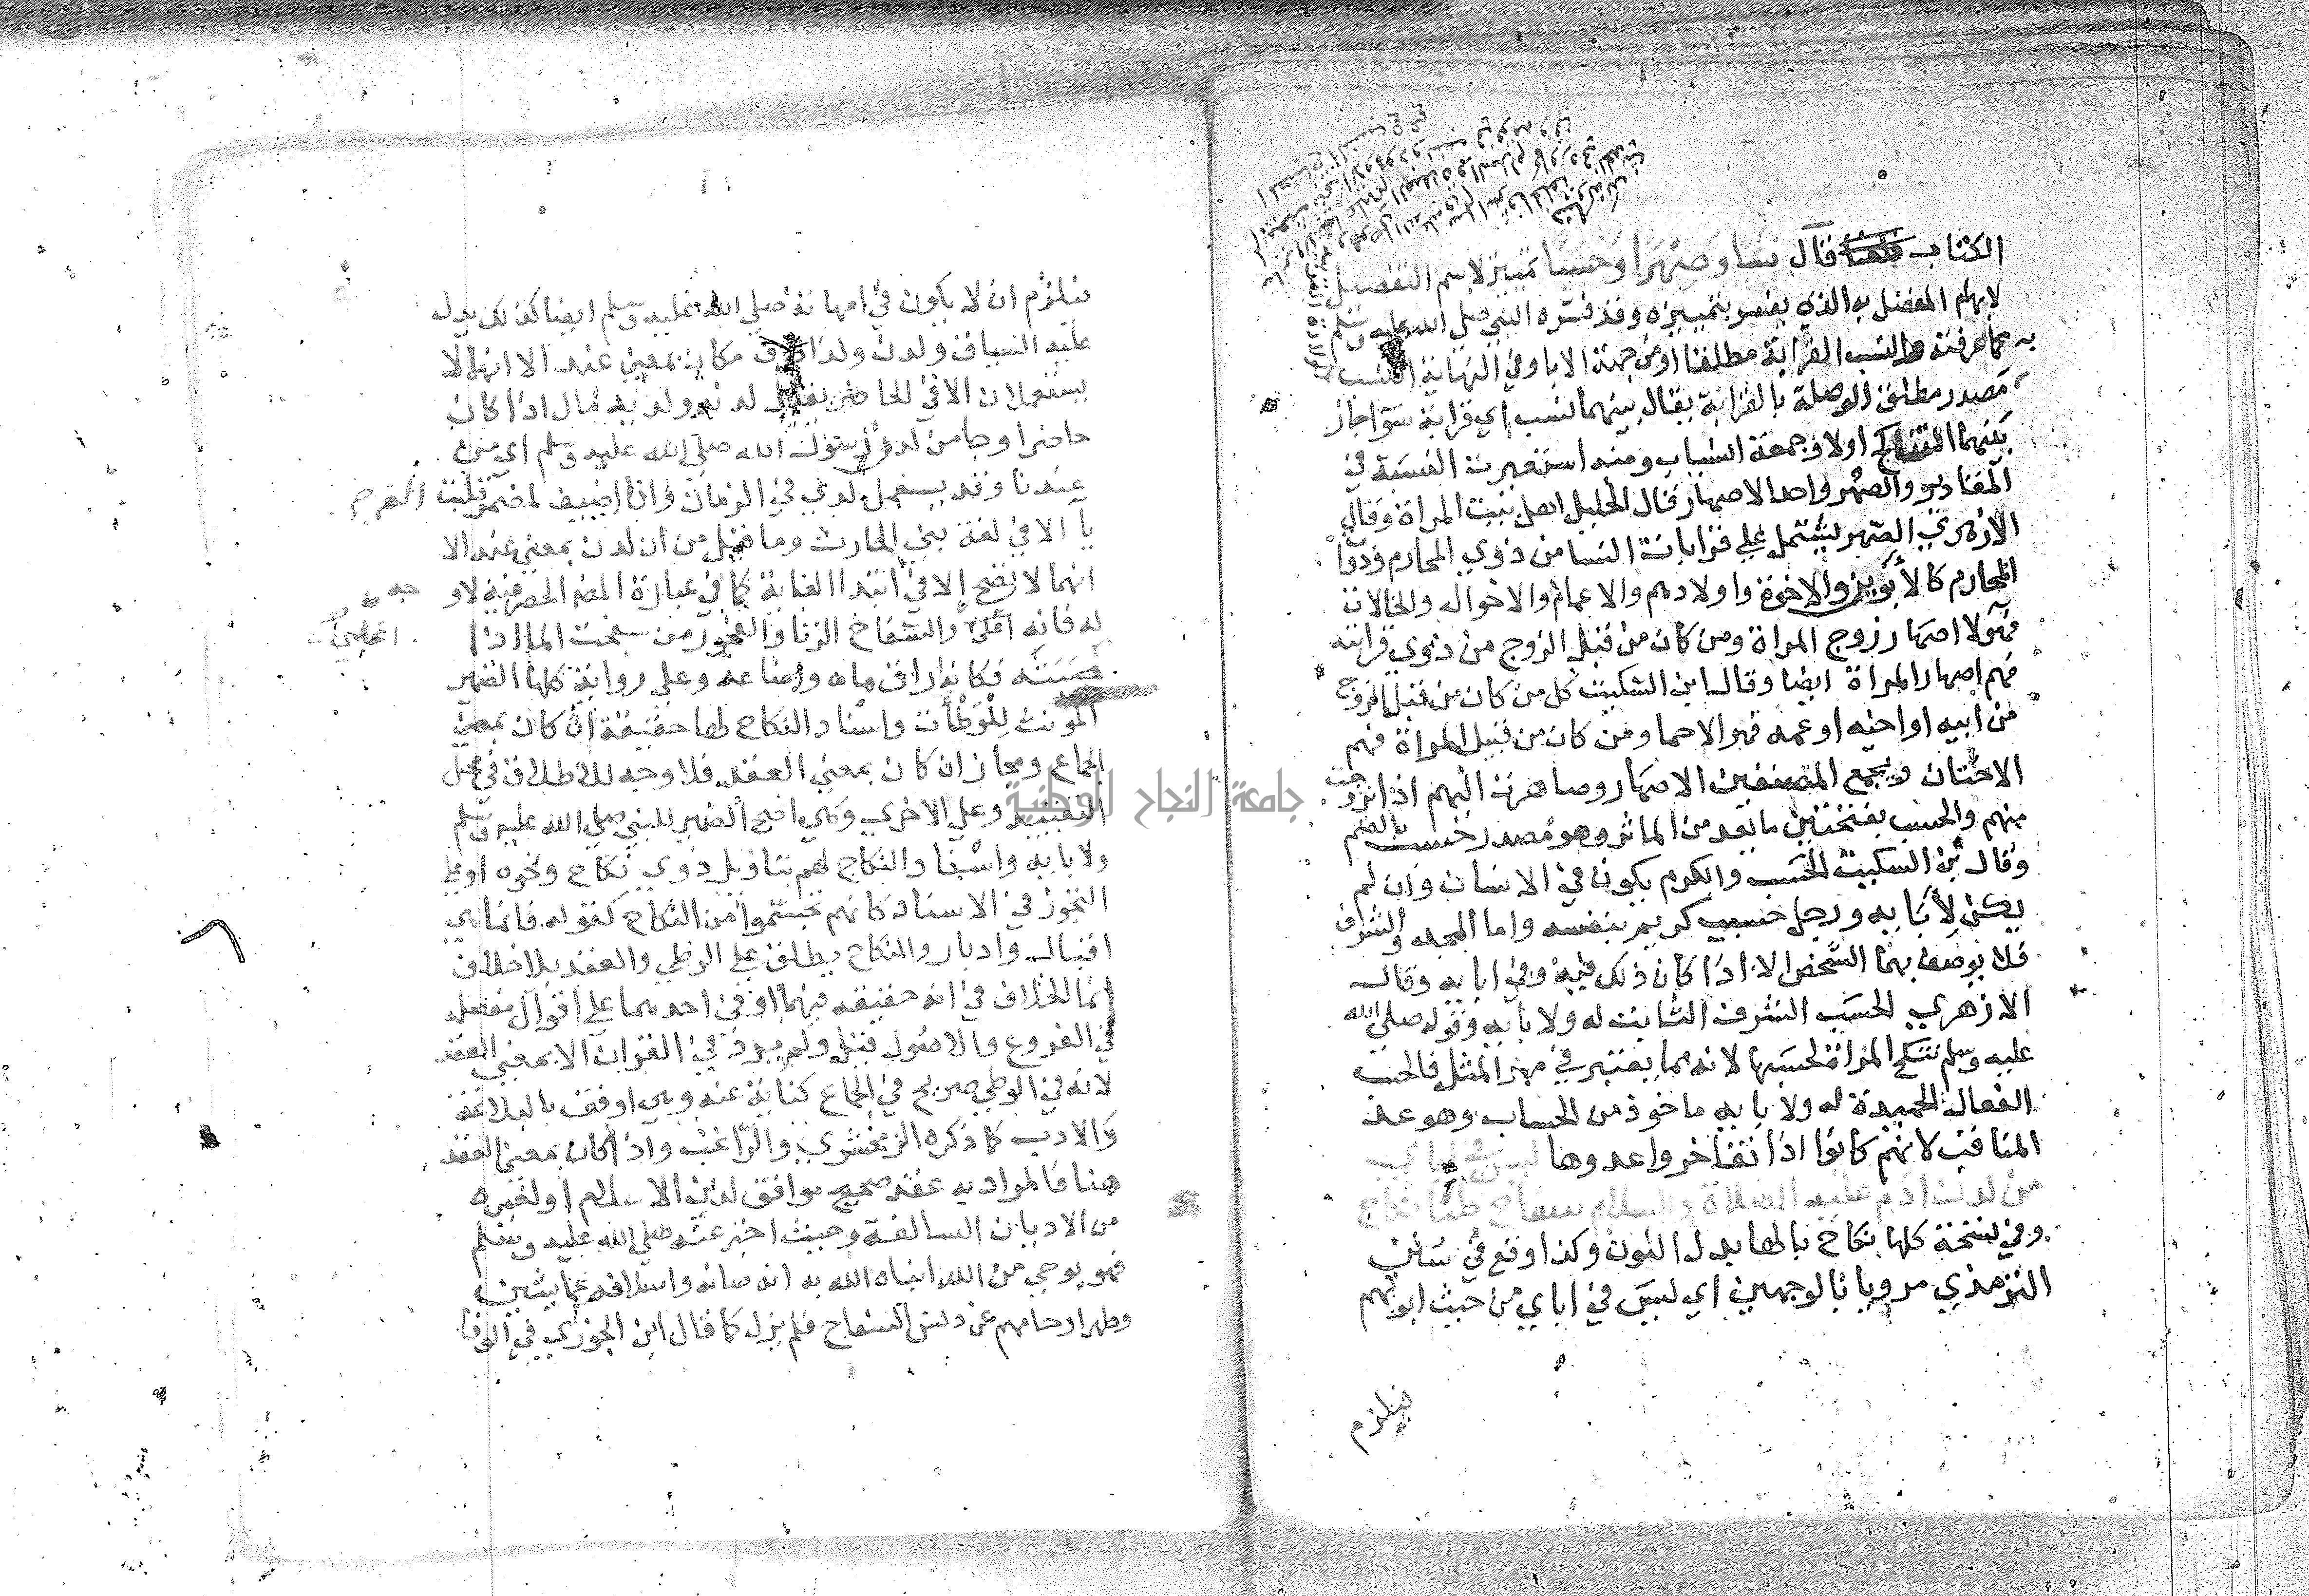 الكتاب قال نسبا وصهرا وحسبا تمييز لاسم التفضيل
لابهام المفضل به الذي يفسر بتمييزه وقد فسره النبي صلى الله عليه وسلم
به كما عرفته والنسب القرابة مطلقا او من جهة الابا وفي النهاية النسب
مصدر مطلق الوصلة بالقرابة يقال بينهما نسب اي قرابة سوا جاز
بينهما التناكح اولا وجمعه انساب ومنه استعيرت النسبة في
المقادير والصهر واحد الاصهار قال الخليل اهل بيت المراة وقال
الازهري الصهر يشتمل على قرابات النسا من ذوي المحارم وذوات
المحارم كالأبوين والاخوة واولادهم والاعمام والاخوال والخالات
فهولا اصهار زوج المراة ومن كان من قبل الزوج من ذوي قرابته
فهم اصهار المراة ايضا وقال ابن السكيت كل من كان من قبل الزوج
من ابيه او اخيه او عمه فهو الاحما ومن كان من قبل المراة فهم
الاختان ويجمع الصنفين الاصهار وصاهرت اليهم اذا تزوجت
منهم والحسب بفتحتين ما يعد من الماثر وهو مصدر حسب بالضم
وقال بن السكيت الحسب والكرم يكون في الانسان وان لم
يكن لأبايه ورجل حسيب كريم بنفسه واما المجد والشرف
فلا يوصف بهما الشخص الا اذا كان ذلك فيه وفي ابايه وقال
الازهري الحسب الشرف الثابت له ولابايه وقوله صلى الله
عليه وسلم تنكح المراة لحسبها لانه مما يعتبر في مهر المثل فالحسب
الفعال الحميدة له ولابايه ماخوذ من الحساب وهو عد
المناقب لانهم كانوا اذا تفاخروا عدوها ليس في اباي
من لدن ادم عليه الصلاة والسلام سفاح كلنا نكاح
وفي نسخة كلها نكاح بالها بدل النون وكذا وقع في سنن
الترمذي مرويا بالوجهين اي ليس في اباي من حيث ابوتهم
فيلزم
فيلزم ان لا يكون في امهاته صلى الله عليه وسلم ايضا كذلك يدل
عليه السياق ولدن ولدا ظرف مكان بمعنى عند الا انهما لا
يستعملان الا في الحاضر يقال لدنه ولديه مال اذا كان
حاضرا وجا من لدن رسول الله صلى الله عليه وسلم اي من
عندنا وقد يستعمل لدي في الزمان واذا اضيف لمضمر قلبت
يا الا في لغة بني الحارث وما قيل من ان لدن بمعنى عند الا
انهما لا تصح الا في ابتدا الغاية كما في عبارة المص الحصر فيه لا و
له فانه اغلى والسفاح الزنا والفجور من سفحت الما اذا
صببته فكانه اراق ماه واضاعه وعلى رواية كلها الضمير
المونث للوطأت واسناد النكاح لها حقيقة ان كان بمعنى
الجماع ومجاز ان كان بمعنى العقد فلا وجه للاطلاق في محل
التقييد وعلى الاخري وهي اصح الضمير للنبي صلى الله عليه وسلم
ولابايه واسناد النكاح لهم بتاويل ذوي نكاح ونحوه او على
التجوز في الاسناد كانهم تجسموا من النكاح كقوله فانما هي
اقبال وادبار والنكاح يطلق على الوطي والعقد بلا خلاف
انما الخلاف في انه حقيقه فيهما او في احدهما على اقوال مفصله
في الفروع والاصول قيل ولم يرد في القران الا بمعني العقد
لانه في الوطي صريح في الجماع كناية عنه وهي اوفق بالبلاغة
والادب كما ذكره الزمخشري والراغب واذا كان بمعنى العقد
هنا فالمراد به عقد صحيح موافق لدين الاسلام او لغيره
من الاديان السالفة وحيث اخبر عنه صلى الله عليه وسلم
فهو بوحي من الله انباه الله به انه صانه واسلافه عما يشين
وطهر ارحامهم عن دنس السفاح فلم يزل كما قال ابن الجوزي في الوفا
جامعة النجاح الوطنية